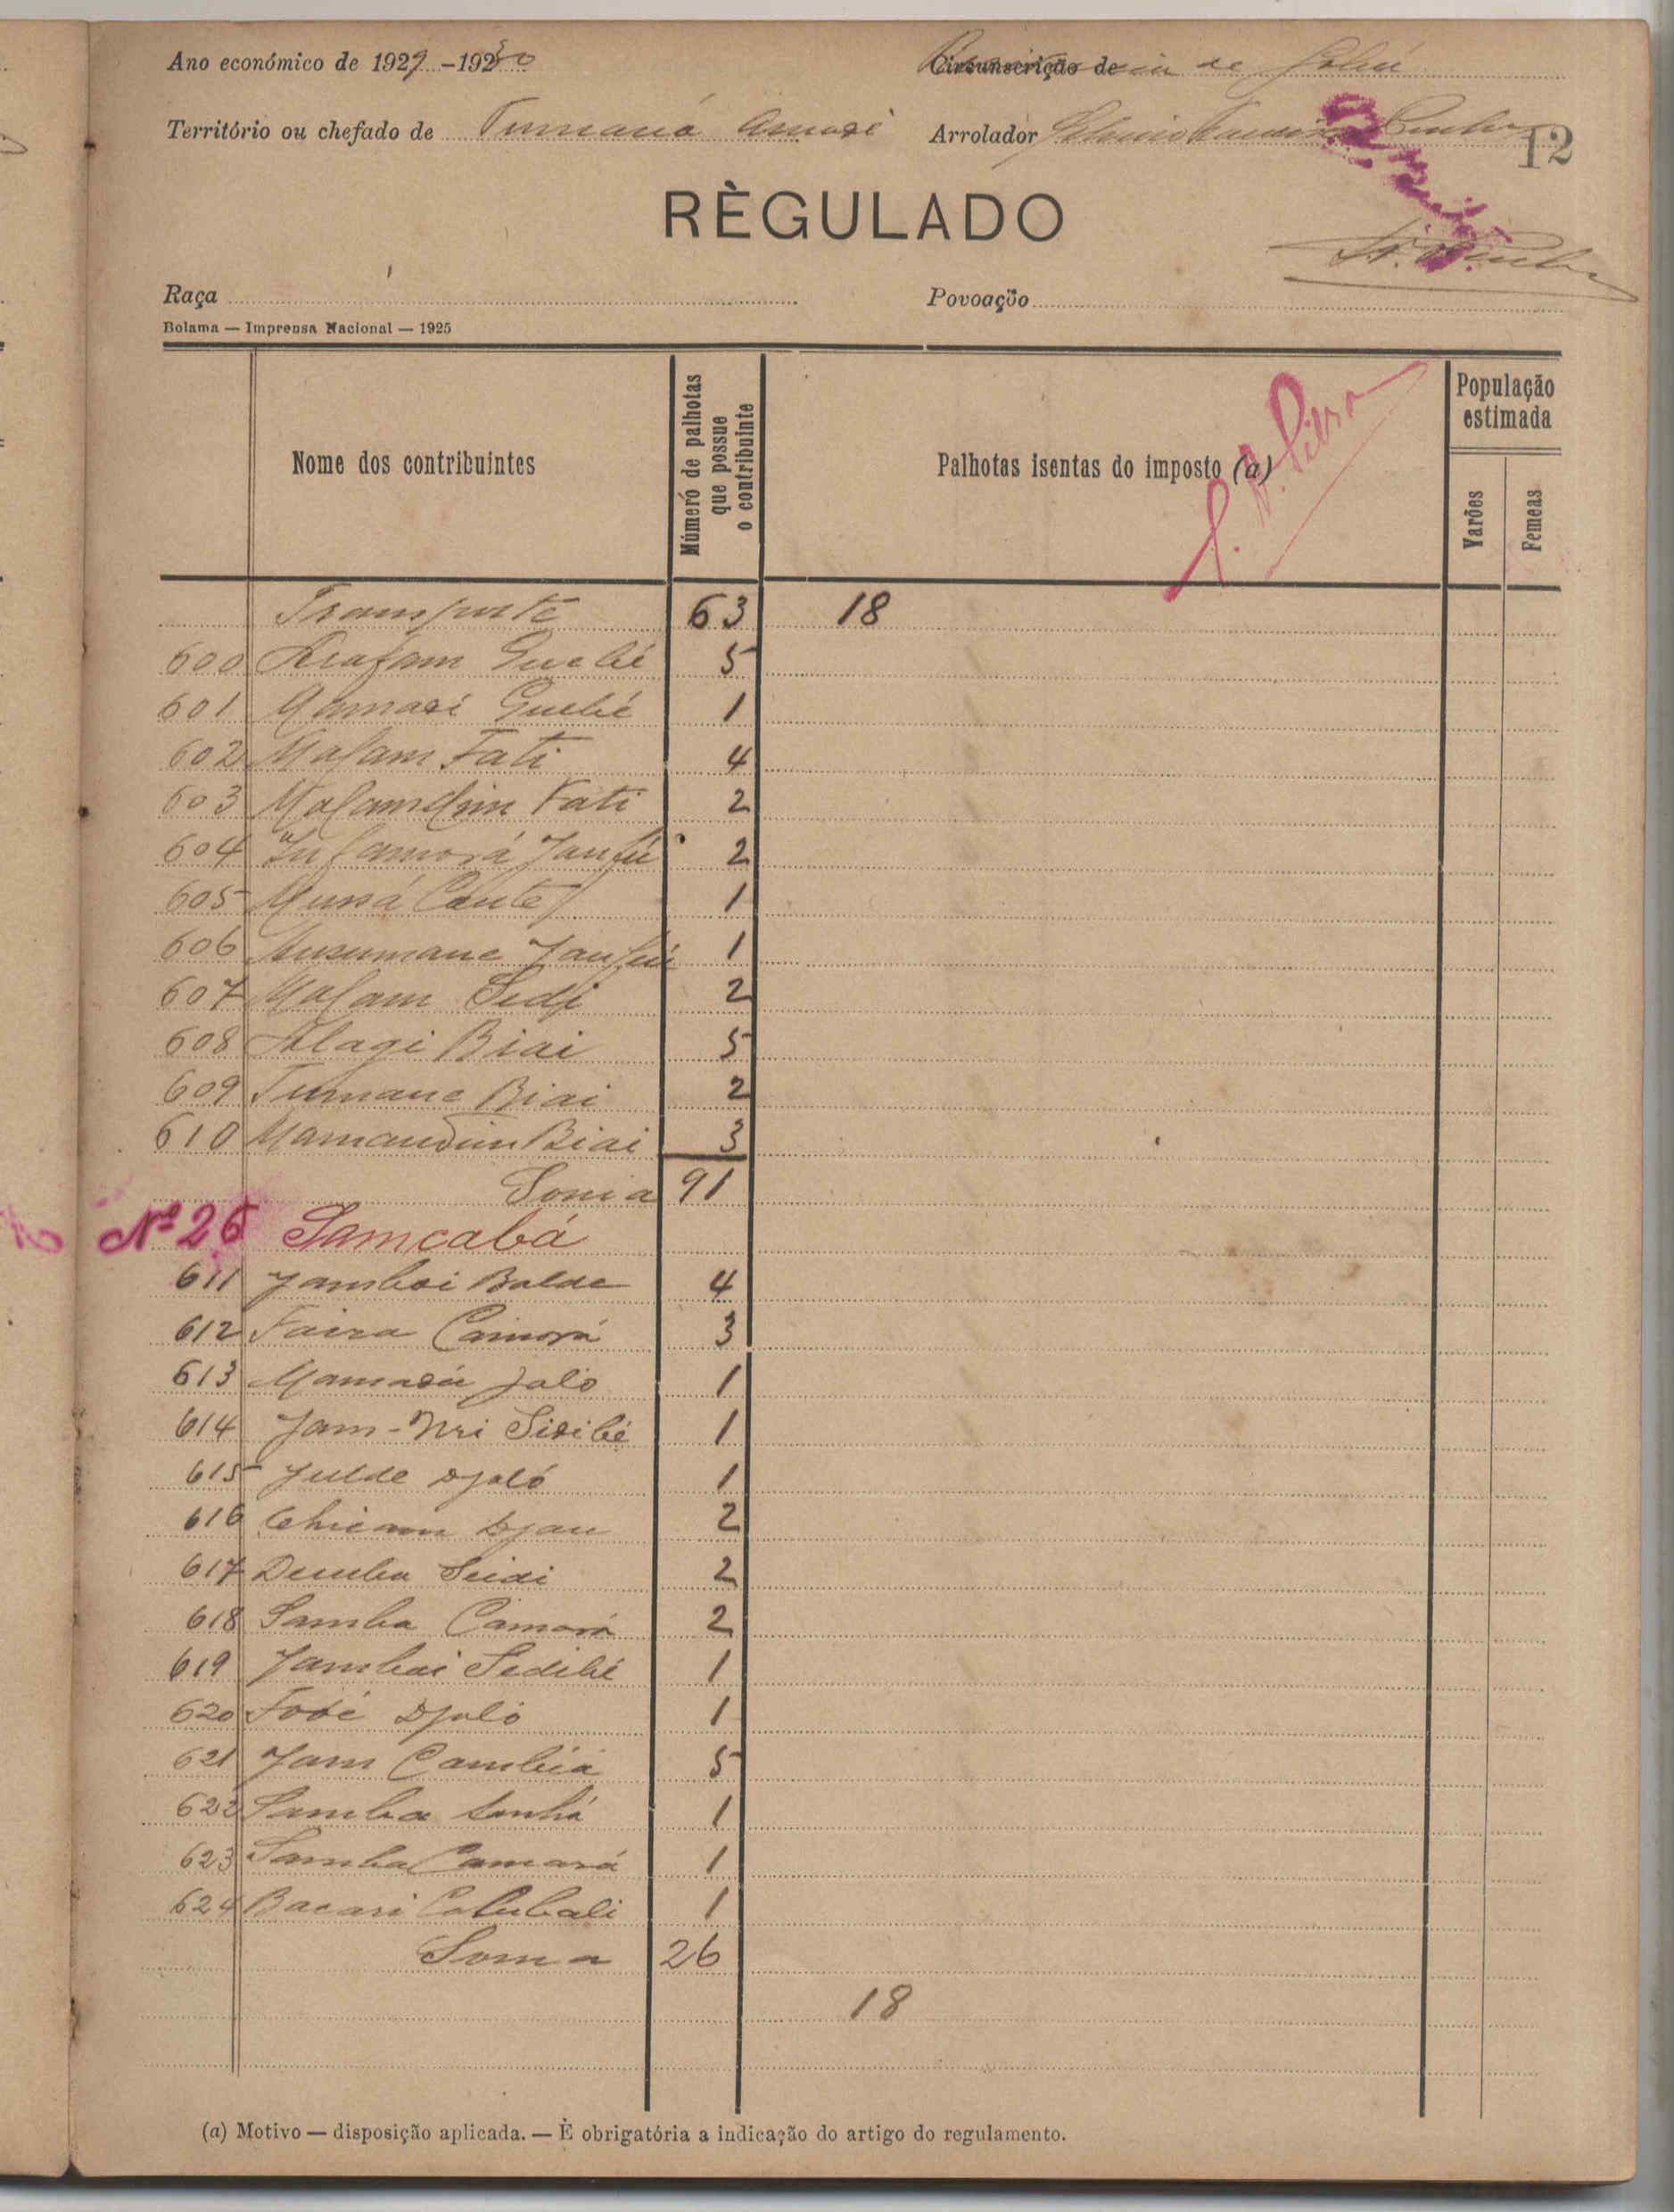 Ano económico de 1929-1930
Circunscrição de
Território ou chefado de Tumaná
Arrolador
12
RÈGULADO
Raça
Povoação
Bolama — Imprensa Nacional — 1925
Nome dos contribuintes
Número de palhotas que possue o contribuinte
Palhotas isentas do imposto (a)
População estimada
Varões
Femeas
Transporte 63 18
600 5
601 1
602 Malam Fati 4
603 Malamdim Fati 2
604 2
605 Mussá 1
606 1
607 Malam 2
608 Alagi Biai 5
609 Tumane Biai 2
610 Mamandim Biai 3
Soma 91
Nº 26 Samcabá
611 Jamboi Balde 4
612 3
613 Mamadú Jaló 1
614 Sidibé 1
615 Julde Djaló 1
616 Djau 2
617 Demba Seidi 2
618 Samba Camará 2
619 Jambai Sedibé 1
620 Djaló 1
621 Jam 5
622 Samba Sanhá 1
623 Samba Camará 1
624 Bacari Colubali 1
Soma 26
18
(a) Motivo — disposição aplicada. — È obrigatória a indicação do artigo do regulamento.